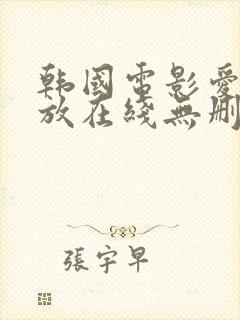 韩國電影愛
放在綫無删
張宇早